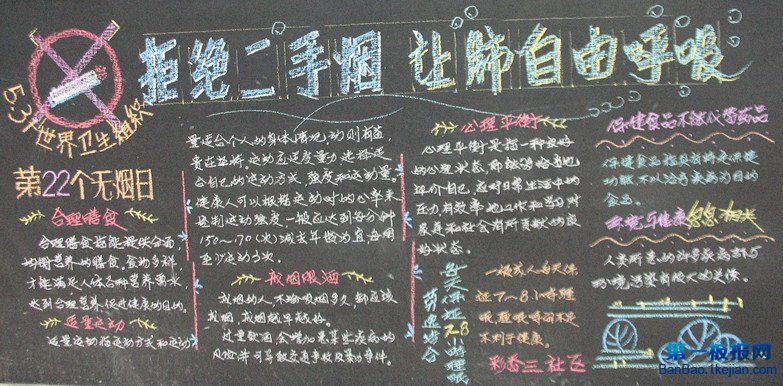 拒绝二手烟 让肺自由呼吸
5.31世界卫生组织
第22个无烟日
合理膳食
合理膳食指能提供全面、
均衡营养的膳食。食物多样
才能满足人体各种营养需求
达到合理营养,促进健康的目的。
适量运动
适量运动指运动方式和运动
量适合个人的身体情况,动则有益
贵在坚持。运动应适度量力,选择适
合自己的运动方式,强度和运动量
健康人可以根据运动时的心率来
控制运动强度,一般应达到每分钟
150~170(次)减去年龄为宜,每周
至少运动3次。
戒烟限酒
戒烟的人,不论吸烟多久,都应该
戒烟,戒烟越早越好。
过量饮酒,会增加患某些疾病的
风险,并可导致交通事故及暴力事件。
心理平衡
心理平衡是指一种良好
的心理状态,即能够恰当地
评价自己,应对日常生活中的
压力,有效率地工作和学习,对
家庭和社会有所贡献的良
好状态。
每天保证
7-8小时睡眠
一般成人每天保
证7~8小时睡
眠,睡眠时间不足
不利于健康。
彩香三社区
保健食品不能代替药品
保健食品指具有特定保健
功能,不以治疗疾病为目的
食品。
环境与健康息息相关
人类所患的许多疾病都与
环境污染有很大的关系。
第一板报网
BanBao.1kejian.com